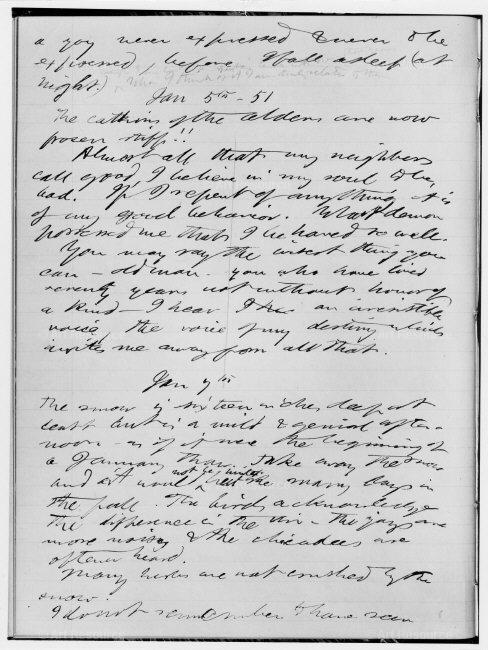 a you never expressed & never to be
expressed before I fall asleep (at
night.)
Jan 5th - 51
The catkins of the alders are now
frozen stiff!!
Almost all that my neighbors
call good I believe in my soul to be
bad. If I repent of anything it is
of my good behavior. What demon
possessed me that I behaved so well.
You may say the wisest thing you
can - old man - you who have lived
seventy years not without honor of
a kind - I hear an irresistible
voice, the voice of my destiny which
invites me away from all that.
Jan 7th
The snow is sixteen inches deep at
least but is a mild & genial after-
noon - as if it were the beginning of
a January thaw. Take away the snow
not be winter
and it would but like many days in
the fall. The birds acknowledge
the difference in the air - the jays are
more noisy & the chicadees are
oftener heard.
Many herbs are not crushed by the
snow.
I do not remember to have seen